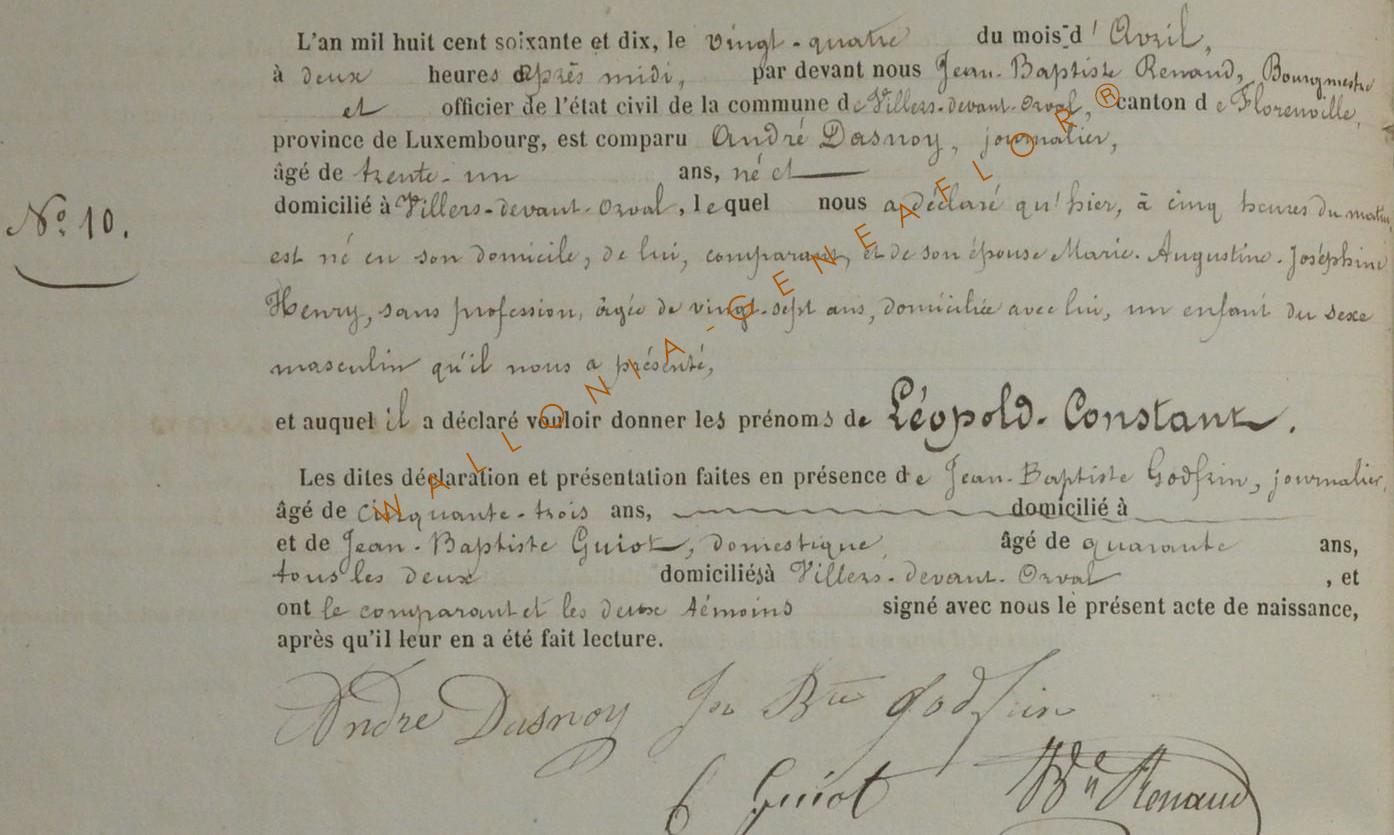 L'an mil huit cent soixante et dix, le vingt-quatre du mois d'Avril,
à deux heures après midi, par devant nous Jean-Baptiste Renaud, Bourgmestre
et officier de l'état civil de la commune de Villers-devant-Orval, canton de Florenville,
province de Luxembourg, est comparu André Dasnoy, journalier,
âgé de trente-un ans, né et
domicilié à Villers-devant-Orval, lequel nous a déclaré qu'hier, à cinq heures du matin,
N° 10.
est né en son domicile, de lui, comparant, et de son épouse Marie-Augustine-Joséphine
Henry, sans profession, âgée de vingt-sept ans, domiciliée avec lui, un enfant du sexe
masculin qu'il nous a présenté,
et auquel il a déclaré vouloir donner les prénoms de Léopold-Constant.
Les dites déclaration et présentation faites en présence de Jean-Baptiste Godfrin, journalier,
âgé de cinquante-trois ans, domicilié à
et de Jean-Baptiste Guiot, domestique, âgé de quarante ans,
tous les deux domiciliés à Villers-devant-Orval, et
ont le comparant et les deux témoins signé avec nous le présent acte de naissance,
après qu'il leur en a été fait lecture.
Andre Dasnoy Jn Bte Godfrin
Guiot Renaud
WALLONIA-GENEAFLOR®